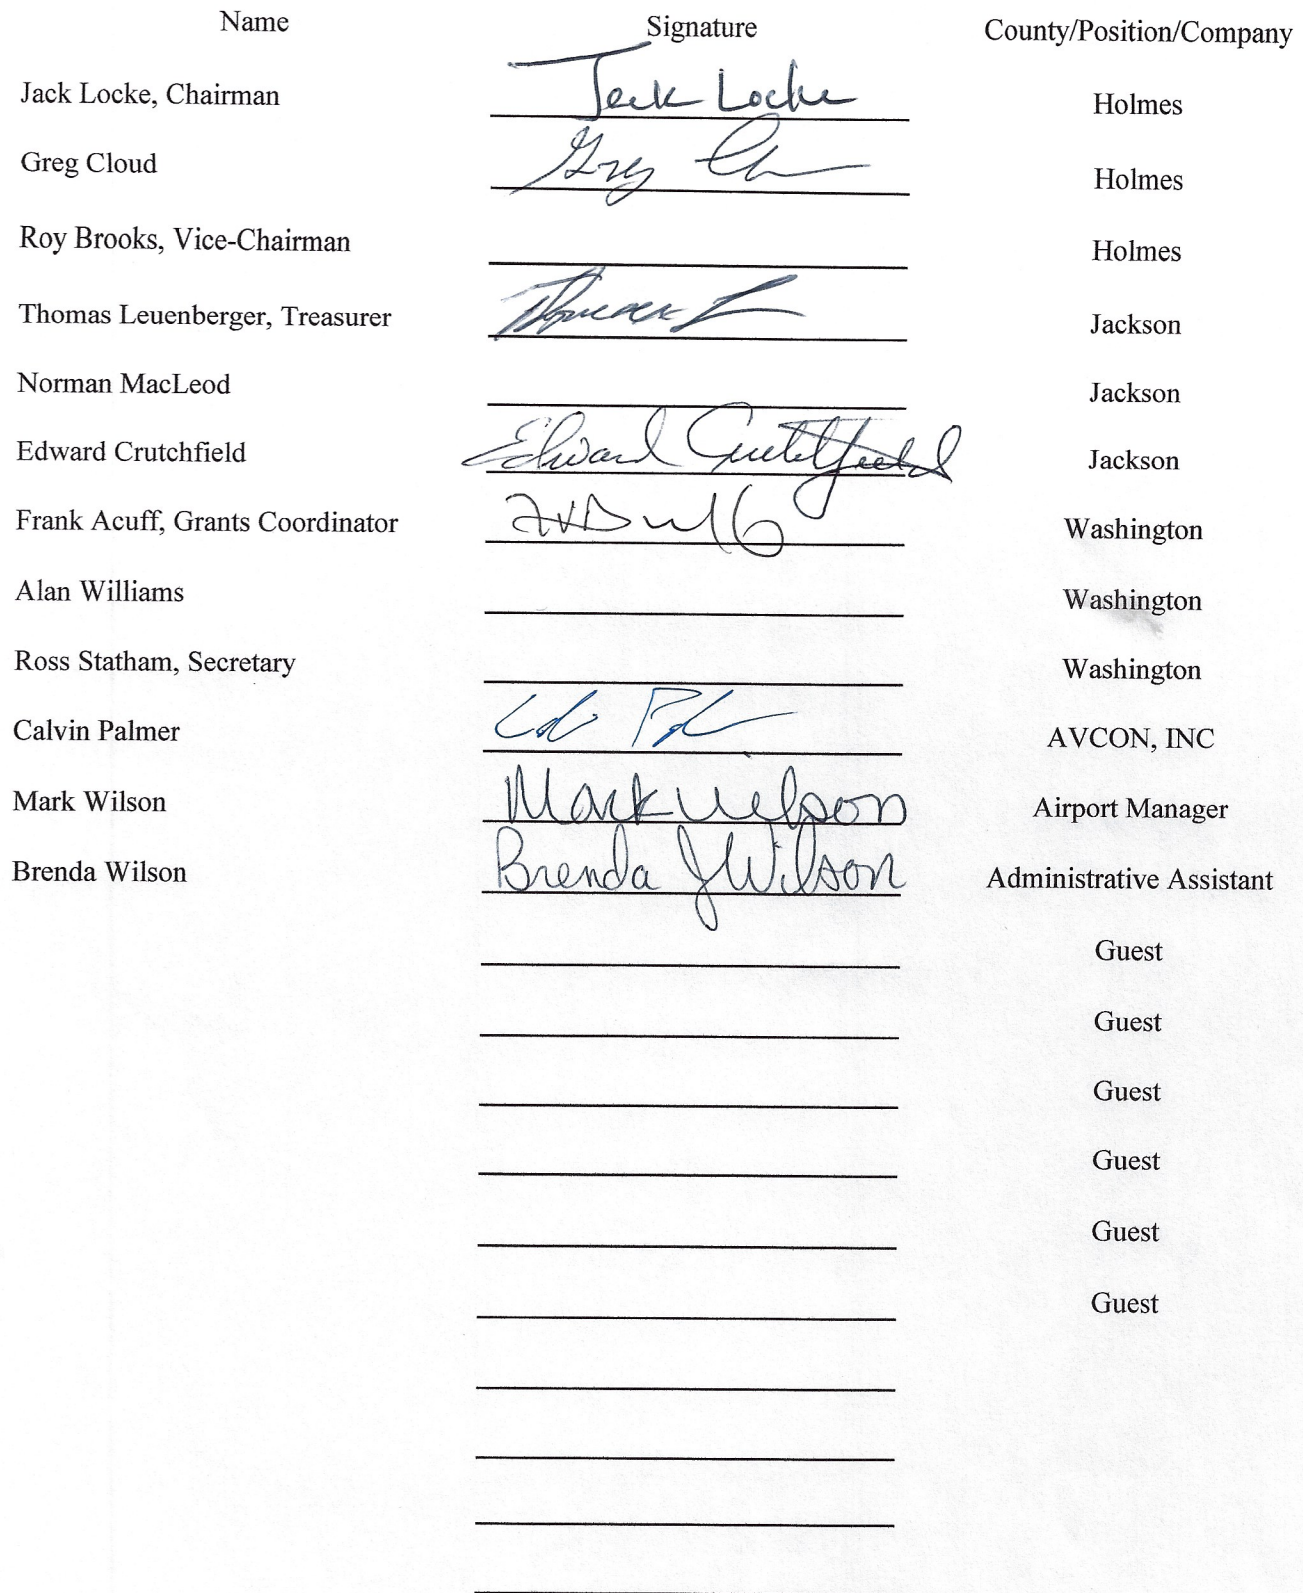 Name Signature County/Position/Company
Jack Locke, Chairman Jack Locke Holmes
Greg Cloud Greg Holmes
Roy Brooks, Vice-Chairman Holmes
Thomas Leuenberger, Treasurer Thomas Jackson
Norman MacLeod Jackson
Edward Crutchfield Edward Crutchfield Jackson
Frank Acuff, Grants Coordinator Washington
Alan Williams Washington
Ross Statham, Secretary Washington
Calvin Palmer AVCON, INC
Mark Wilson Mark Wilson Airport Manager
Brenda Wilson Brenda J Wilson Administrative Assistant
Guest
Guest
Guest
Guest
Guest
Guest